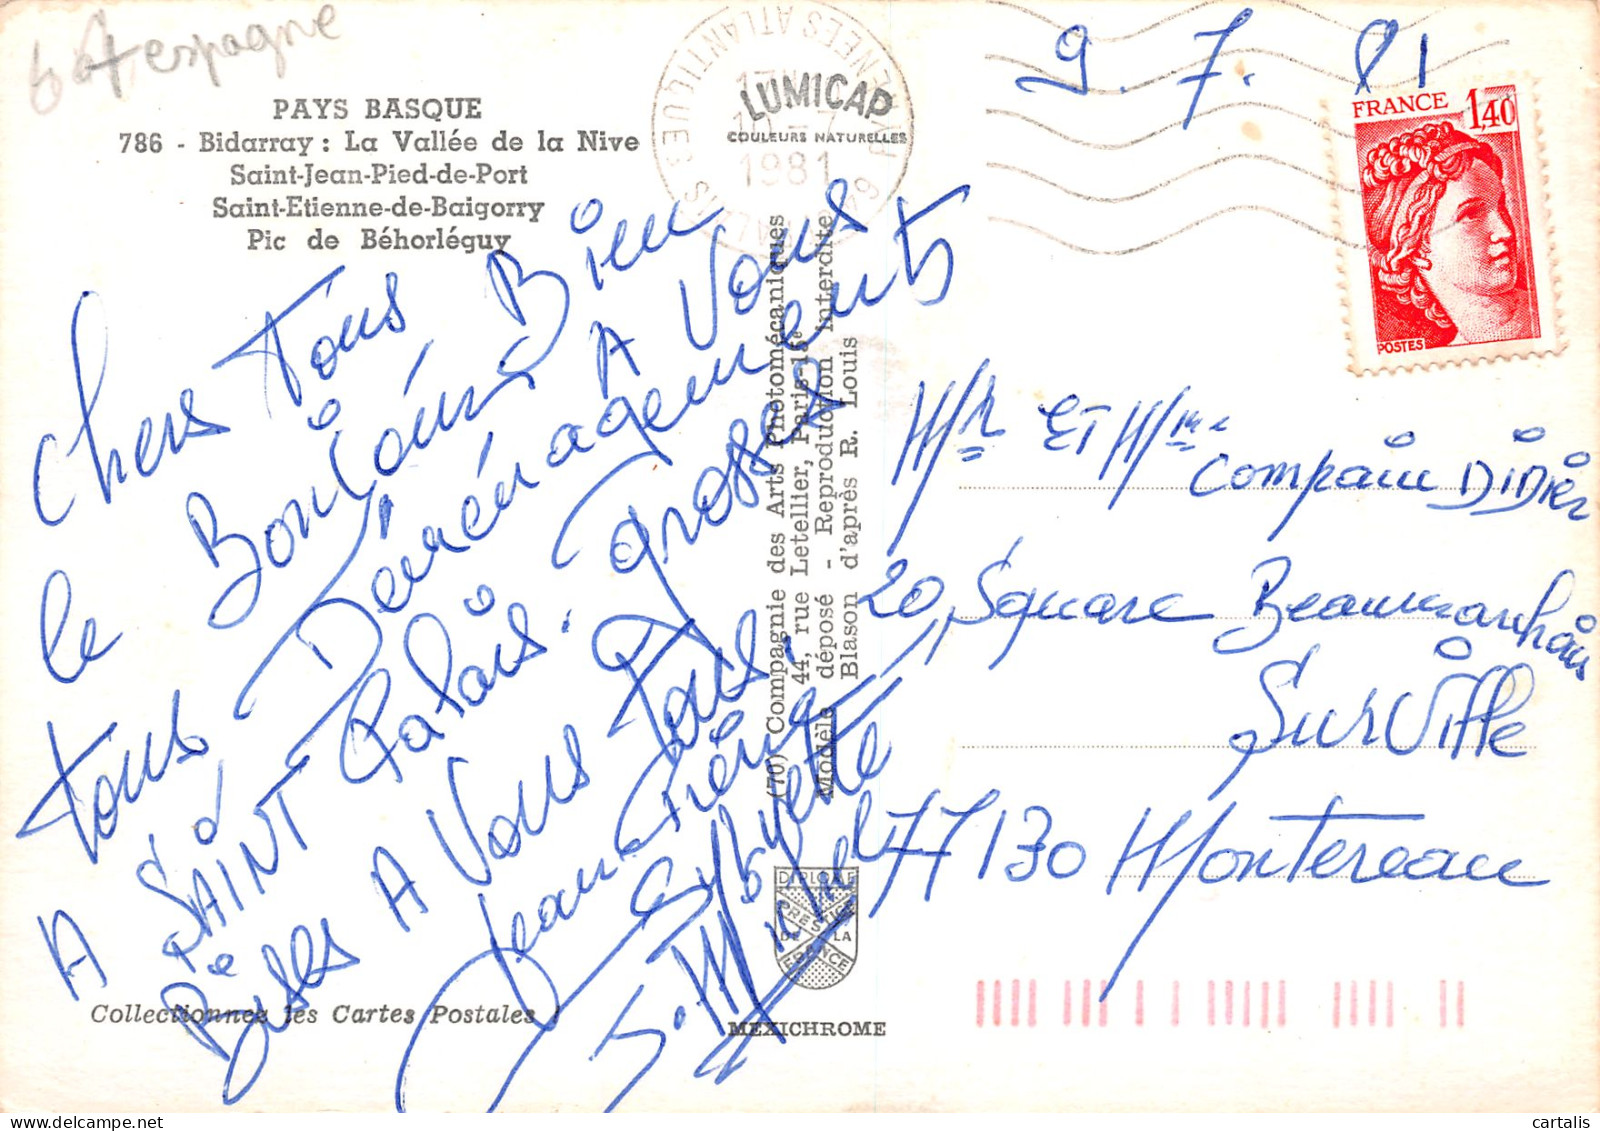 64 espagne
PAYS BASQUE
786 - Bidarray : La Vallée de la Nive
Saint-Jean-Pied-de-Port
Saint-Etienne-de-Baigorry
Pic de Béhorléguy
Chers Tous Bien
le Bonjour A Vous
Tous Déménagements
A SAINT Palais. Grosses
Bises A Vous Tous.
Sylvette
Collectionnez les Cartes Postales
LUMICAP
COULEURS NATURELLES
PYRENEES ATLANTIQUES
1981
(70) Compagnie des Arts Photomécaniques
44, rue Letellier, Paris-15e
Modèle déposé - Reproduction interdite
Blason d'après R. Louis
DIPLOME
PRESTIGE
DE LA
FRANCE
MEXICHROME
9. 7. 81
FRANCE 1,40
POSTES
Mr ET Mme
Compain DiDier
20, Square Beaumarchais
SurVille
77130 Montereau
cartalis